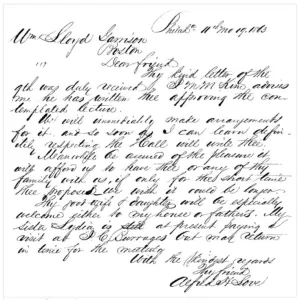 Philada 11th mo 19, 1863
Wm Lloyd Garrison
Boston
Dear friend
Thy kind letter of the
9th was duly received & J. M. McKim advises
me he has written thee approving the con-
templated lecture.
We will immediately make arrangements
for it and so soon as I can learn defin-
itely respecting the Hall will write thee.
Meanwhile be assured of the pleasure it
will afford us to have thee or any of thy
family with us, if only for the short time
thee proposed, we wish it could be longer.
Thy good wife & daughter will be especially
welcome either to my house or father's. My
sister Lydia is at present paying a
visit at but may return
in time for the meeting
With the kindest regards
Thy friend
Alfred H. Love